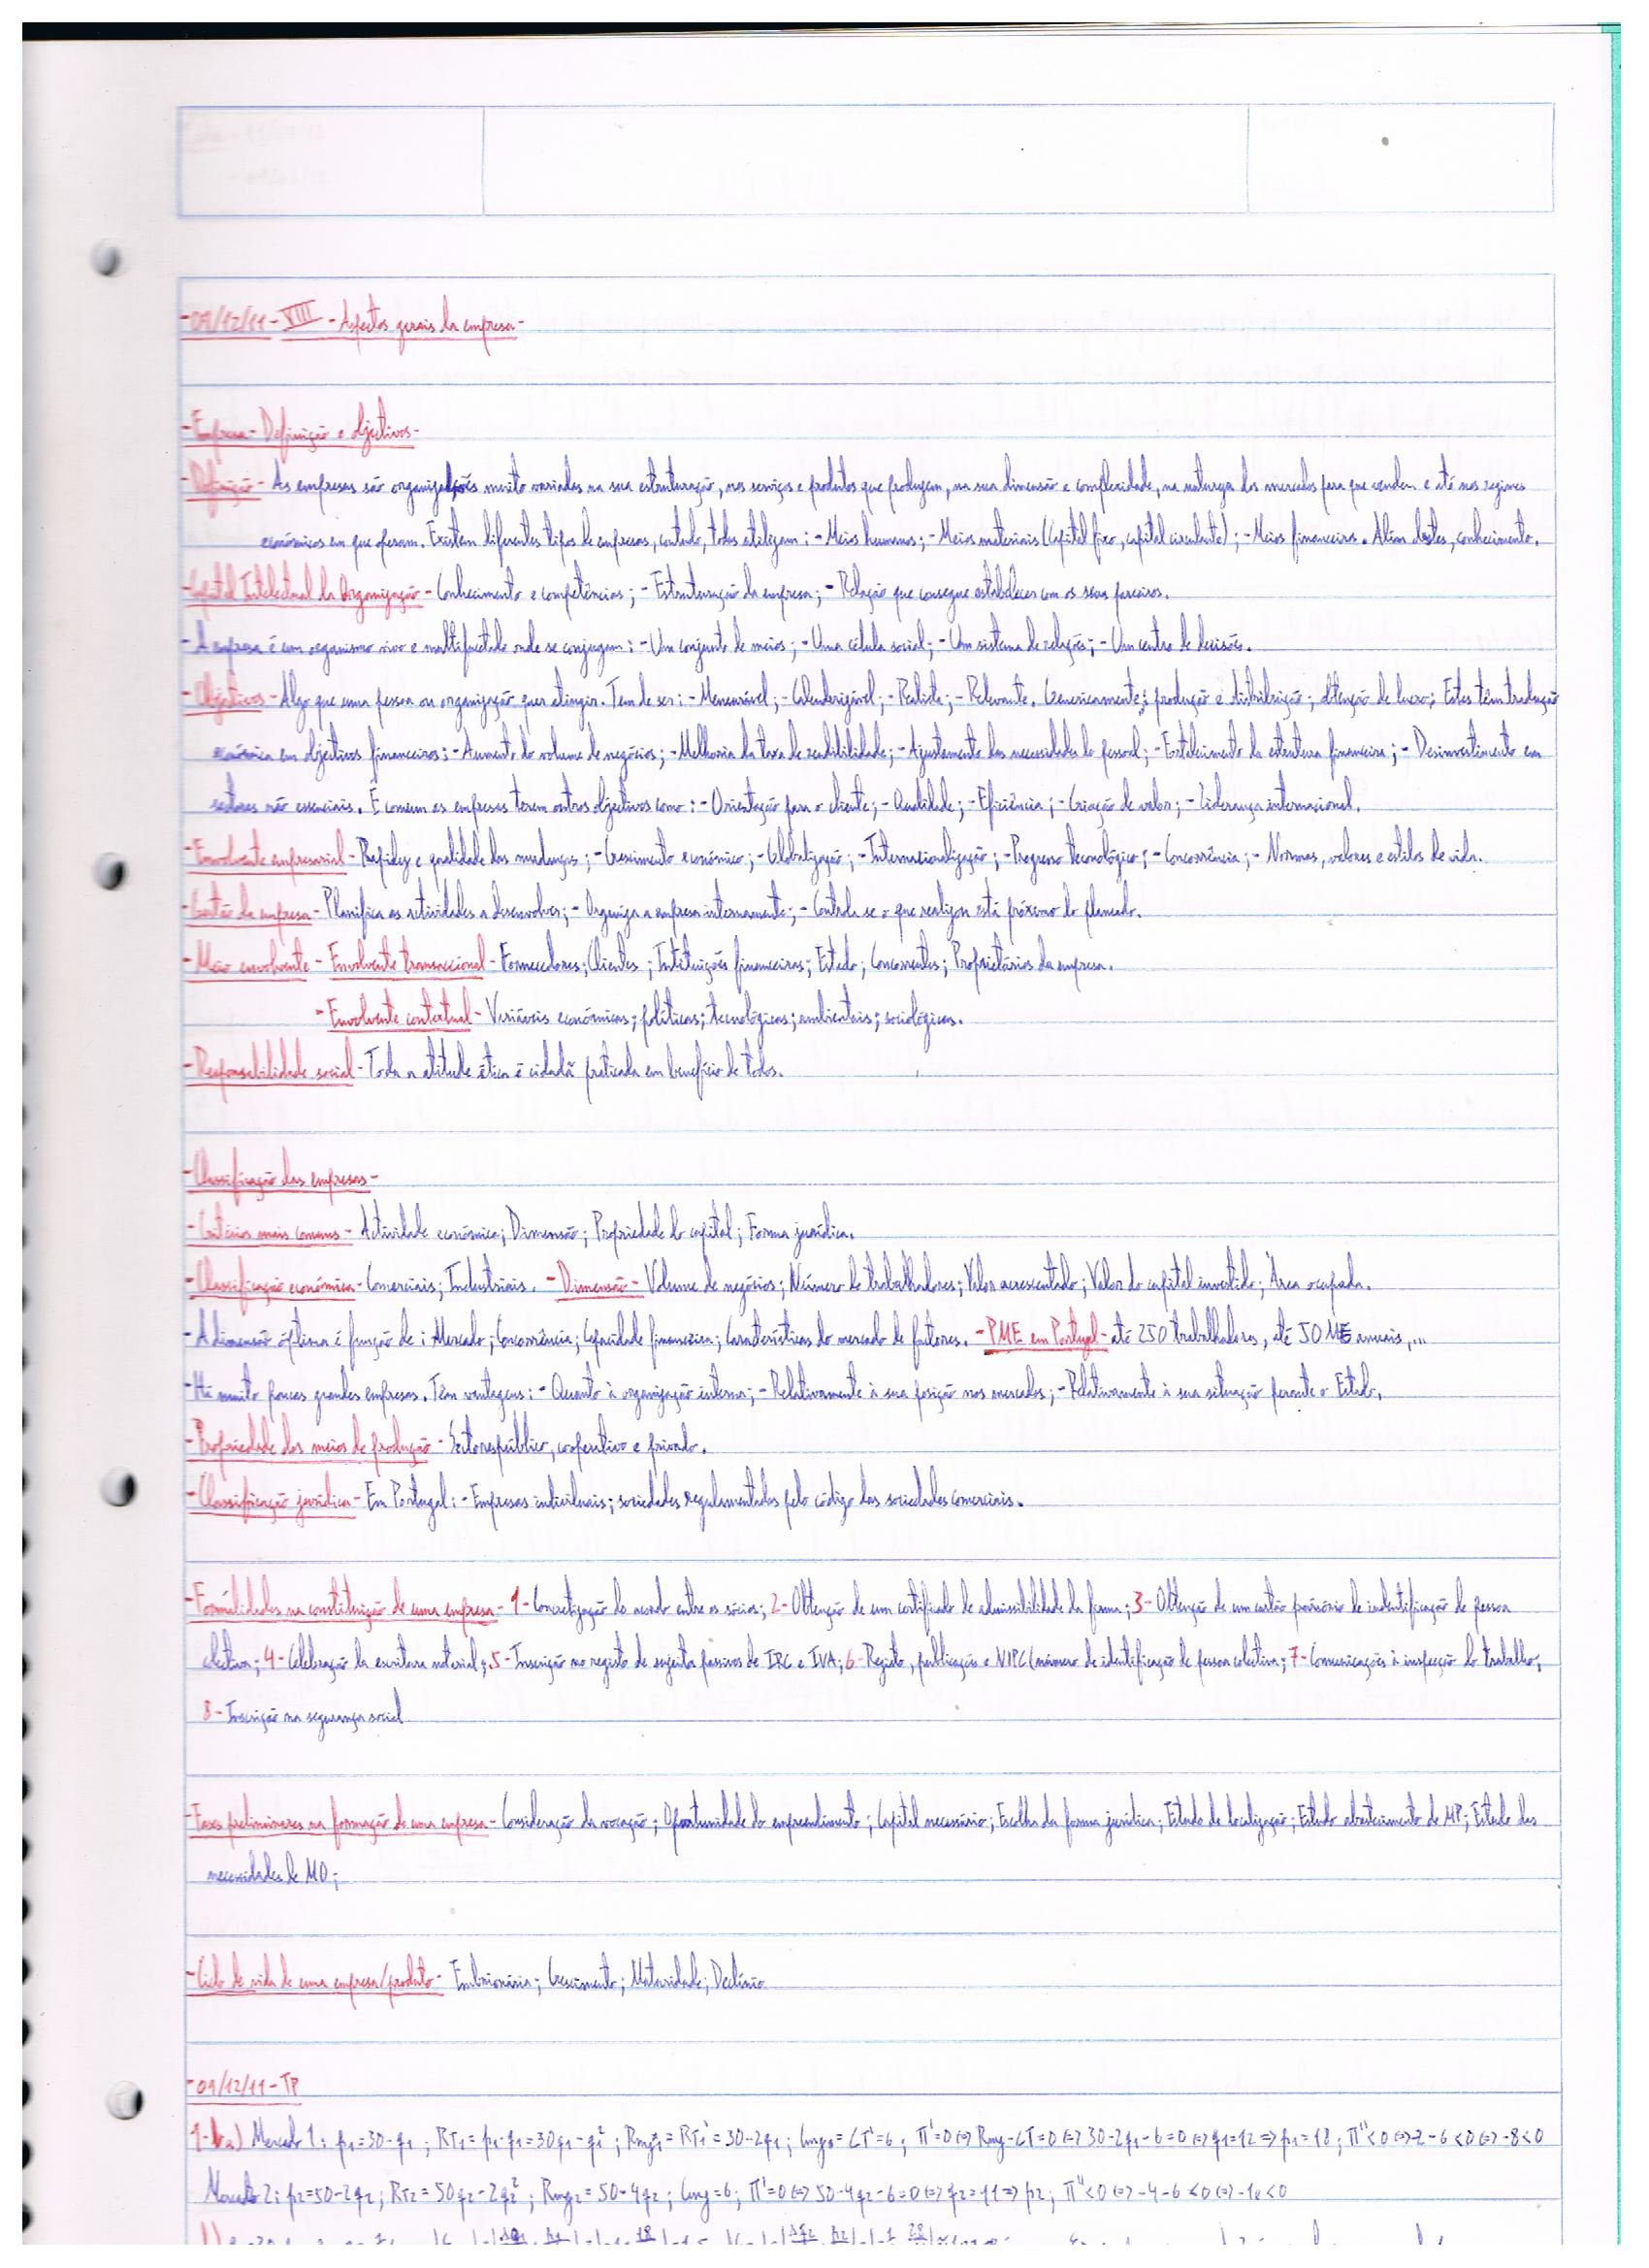 -09/12/11- VIII - Aspectos gerais da empresa-
-Empresa- Definição e objectivos-
-Definição- As empresas são organizações muito variadas na sua estruturação, nos serviços e produtos que produzem, na sua dimensão e complexidade, na natureza dos mercados para que vendem e até nos regimes
económicos em que operam. Existem diferentes tipos de empresas, contudo, todas utilizam: - Meios humanos; - Meios materiais (Capital fixo, capital circulante); - Meios financeiros. Além destes, conhecimento.
-Capital Intelectual da Organização - Conhecimento e competências; - Estruturação da empresa; - Relação que consegue estabelecer com os seus parceiros.
-A empresa é um organismo vivo e multifacetado onde se conjugam: - Um conjunto de meios; - Uma célula social; - Um sistema de relações; - Um centro de decisões.
-Objectivos - Algo que uma pessoa ou organização quer atingir. Tem de ser: - Mensurável; - Calendarizável; - Realista; - Relevante. Genericamente: produção e distribuição; obtenção de lucro; Estes têm tradução
económica em objectivos financeiros: - Aumento do volume de negócios; - Melhoria da taxa de rendibilidade; - Ajustamento das necessidades de pessoal; - Fortalecimento da estrutura financeira; - Desinvestimento em
sectores não essenciais. É comum as empresas terem outros objectivos como: - Orientação para o cliente; - Qualidade; - Eficiência; - Criação de valor; - Liderança internacional.
-Envolvente empresarial - Rapidez e qualidade das mudanças; - Crescimento económico; - Globalização; - Internacionalização; - Progresso tecnológico; - Concorrência; - Normas, valores e estilos de vida.
-Gestão da empresa - Planifica as actividades a desenvolver; - Organiza a empresa internamente; - Controla se o que realizou está próximo do planeado.
-Meio envolvente - Envolvente transaccional - Fornecedores; Clientes; Instituições financeiras; Estado; Concorrentes; Proprietários da empresa.
- Envolvente contextual - Variáveis económicas; políticas; tecnológicas; ambientais; sociológicas.
-Responsabilidade social - Toda a atitude ética e cidadã praticada em benefício de todos.
-Classificação das empresas-
-Critérios mais comuns - Actividade económica; Dimensão; Propriedade do capital; Forma jurídica.
-Classificação económica - Comerciais; Industriais. - Dimensão - Volume de negócios; Número de trabalhadores; Valor acrescentado; Valor do capital investido; Área ocupada.
-A dimensão óptima é função de: Mercado; Concorrência; Capacidade financeira; Características do mercado de factores. - PME em Portugal - até 250 trabalhadores, até 50 M€ anuais,...
-Há muito poucas grandes empresas. Têm vantagens: - Quanto à organização interna; - Relativamente à sua posição nos mercados; - Relativamente à sua situação perante o Estado.
-Propriedade dos meios de produção - Sectores público, cooperativo e privado.
-Classificação jurídica - Em Portugal: - Empresas individuais; sociedades regulamentadas pelo código das sociedades comerciais.
-Formalidades na constituição de uma empresa - 1- Concretização do acordo entre os sócios; 2- Obtenção de um certificado de admissibilidade da firma; 3- Obtenção de um cartão provisório de indentificação de pessoa
colectiva; 4- Celebração da escritura notarial; 5- Inscrição no registo de sujeitos passivos de IRC e IVA; 6- Registo, publicação e NIPC (número de identificação de pessoa colectiva; 7- Comunicações à inspecção do trabalho;
8- Inscrição na segurança social
-Fases preliminares na formação de uma empresa - Consideração da vocação; Oportunidade do empreendimento; Capital necessário; Escolha da forma jurídica; Estudo de localização; Estudo abastecimento de MP; Estudo das
necessidades de MO;
-Ciclo de vida de uma empresa/produto - Embrionária; Crescimento; Maturidade; Declínio
-09/12/11- TP
1- a) Mercado 1: p1=30-q1 ; RT1 = p1·q1=30q1-q1² ; Rmg1 = RT1' = 30-2q1 ; Cmg = CT'=6 ; Π'=0 <=> Rmg-CT=0 <=> 30-2q1-6=0 <=> q1=12 => p1=18 ; Π''<0 <=> -2-6<0 <=> -8<0
Mercado 2: p2=50-2q2 ; RT2 = 50q2-2q2² ; Rmg2 = 50-4q2 ; Cmg=6 ; Π'=0 <=> 50-4q2-6=0 <=> q2=11 => p2 ; Π''<0 <=> -4-6<0 <=> -10<0